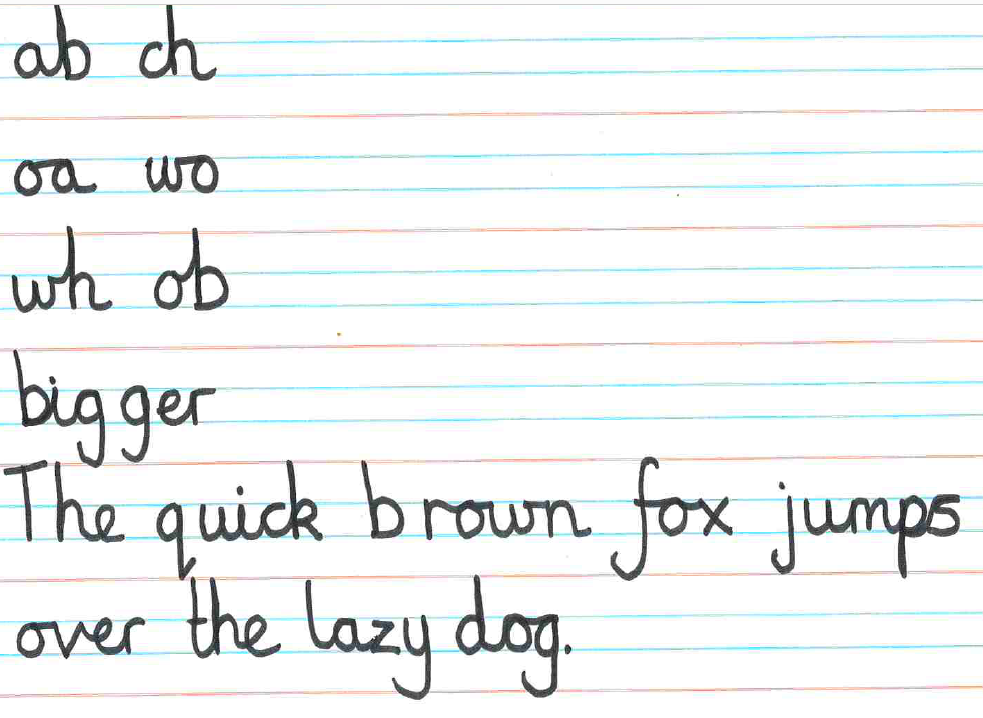 ab ch
oa wo
wh ob
bigger
The quick brown fox jumps
over the lazy dog.